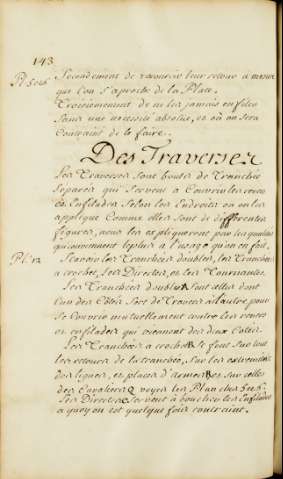 143
Pl. 5 et 6
Secondement de racourcir leur retour a mesure
que l'on s'aproche de la Place.
Troisiemement de ne les jamais enfiler
sans une necessité absolue, et où on sera
Contraint de le faire.
Des Traverses
Les Traverses sont bouts de Tranchée
separés qui servent à Couvrir les revers
et Enfilades selon les Endroits ou on les
applique Comme elles sont de differentes
figures, nous les expliquerons par les qualités
qui conviennent le plus a l'usage qu'on en fait.
Pl. 12
Scavoir les Tranchées doubles, les Tranchées
a crochet, les Directes, et les Tournantes.
Les Tranchées doubles sont celles dont
l'un des Côtés sert de Traverse à l'autre pour
se Couvrir mutuellement contre les revers
et enfilades qui viennent des deux Côtés.
Les Tranchées a crochet se font sur tout
les retours de la tranchée, sur les extremités
des lignes, et places d'armes et sur celles
des Cavaliers voyés les Planches 5 et 6.
Les Directes servent à boucher les Enfilades
a quoy on est quelque fois contraint.